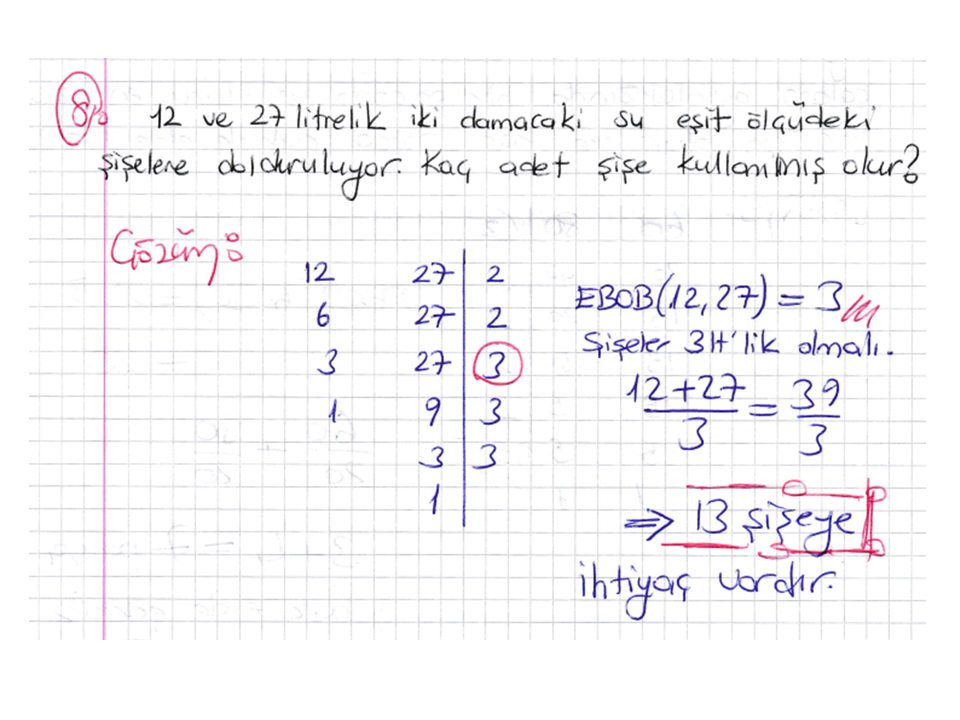 8) 12 ve 27 litrelik iki damacaki su eşit ölçüdeki
şişelere dolduruluyor. Kaç adet şişe kullanılmış olur?
Çözüm:
12 27 2
6 27 2
3 27 3
1 9 3
3 3
1
EBOB(12,27) = 3
Şişeler 3lt'lik olmalı.
12+27 / 3 = 39 / 3
⇒ 13 şişeye
ihtiyaç vardır.